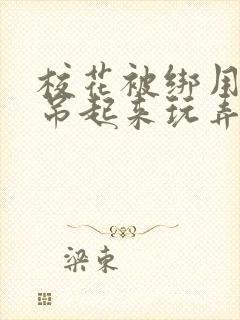 校花被绑用
吊起来玩弄
梁束